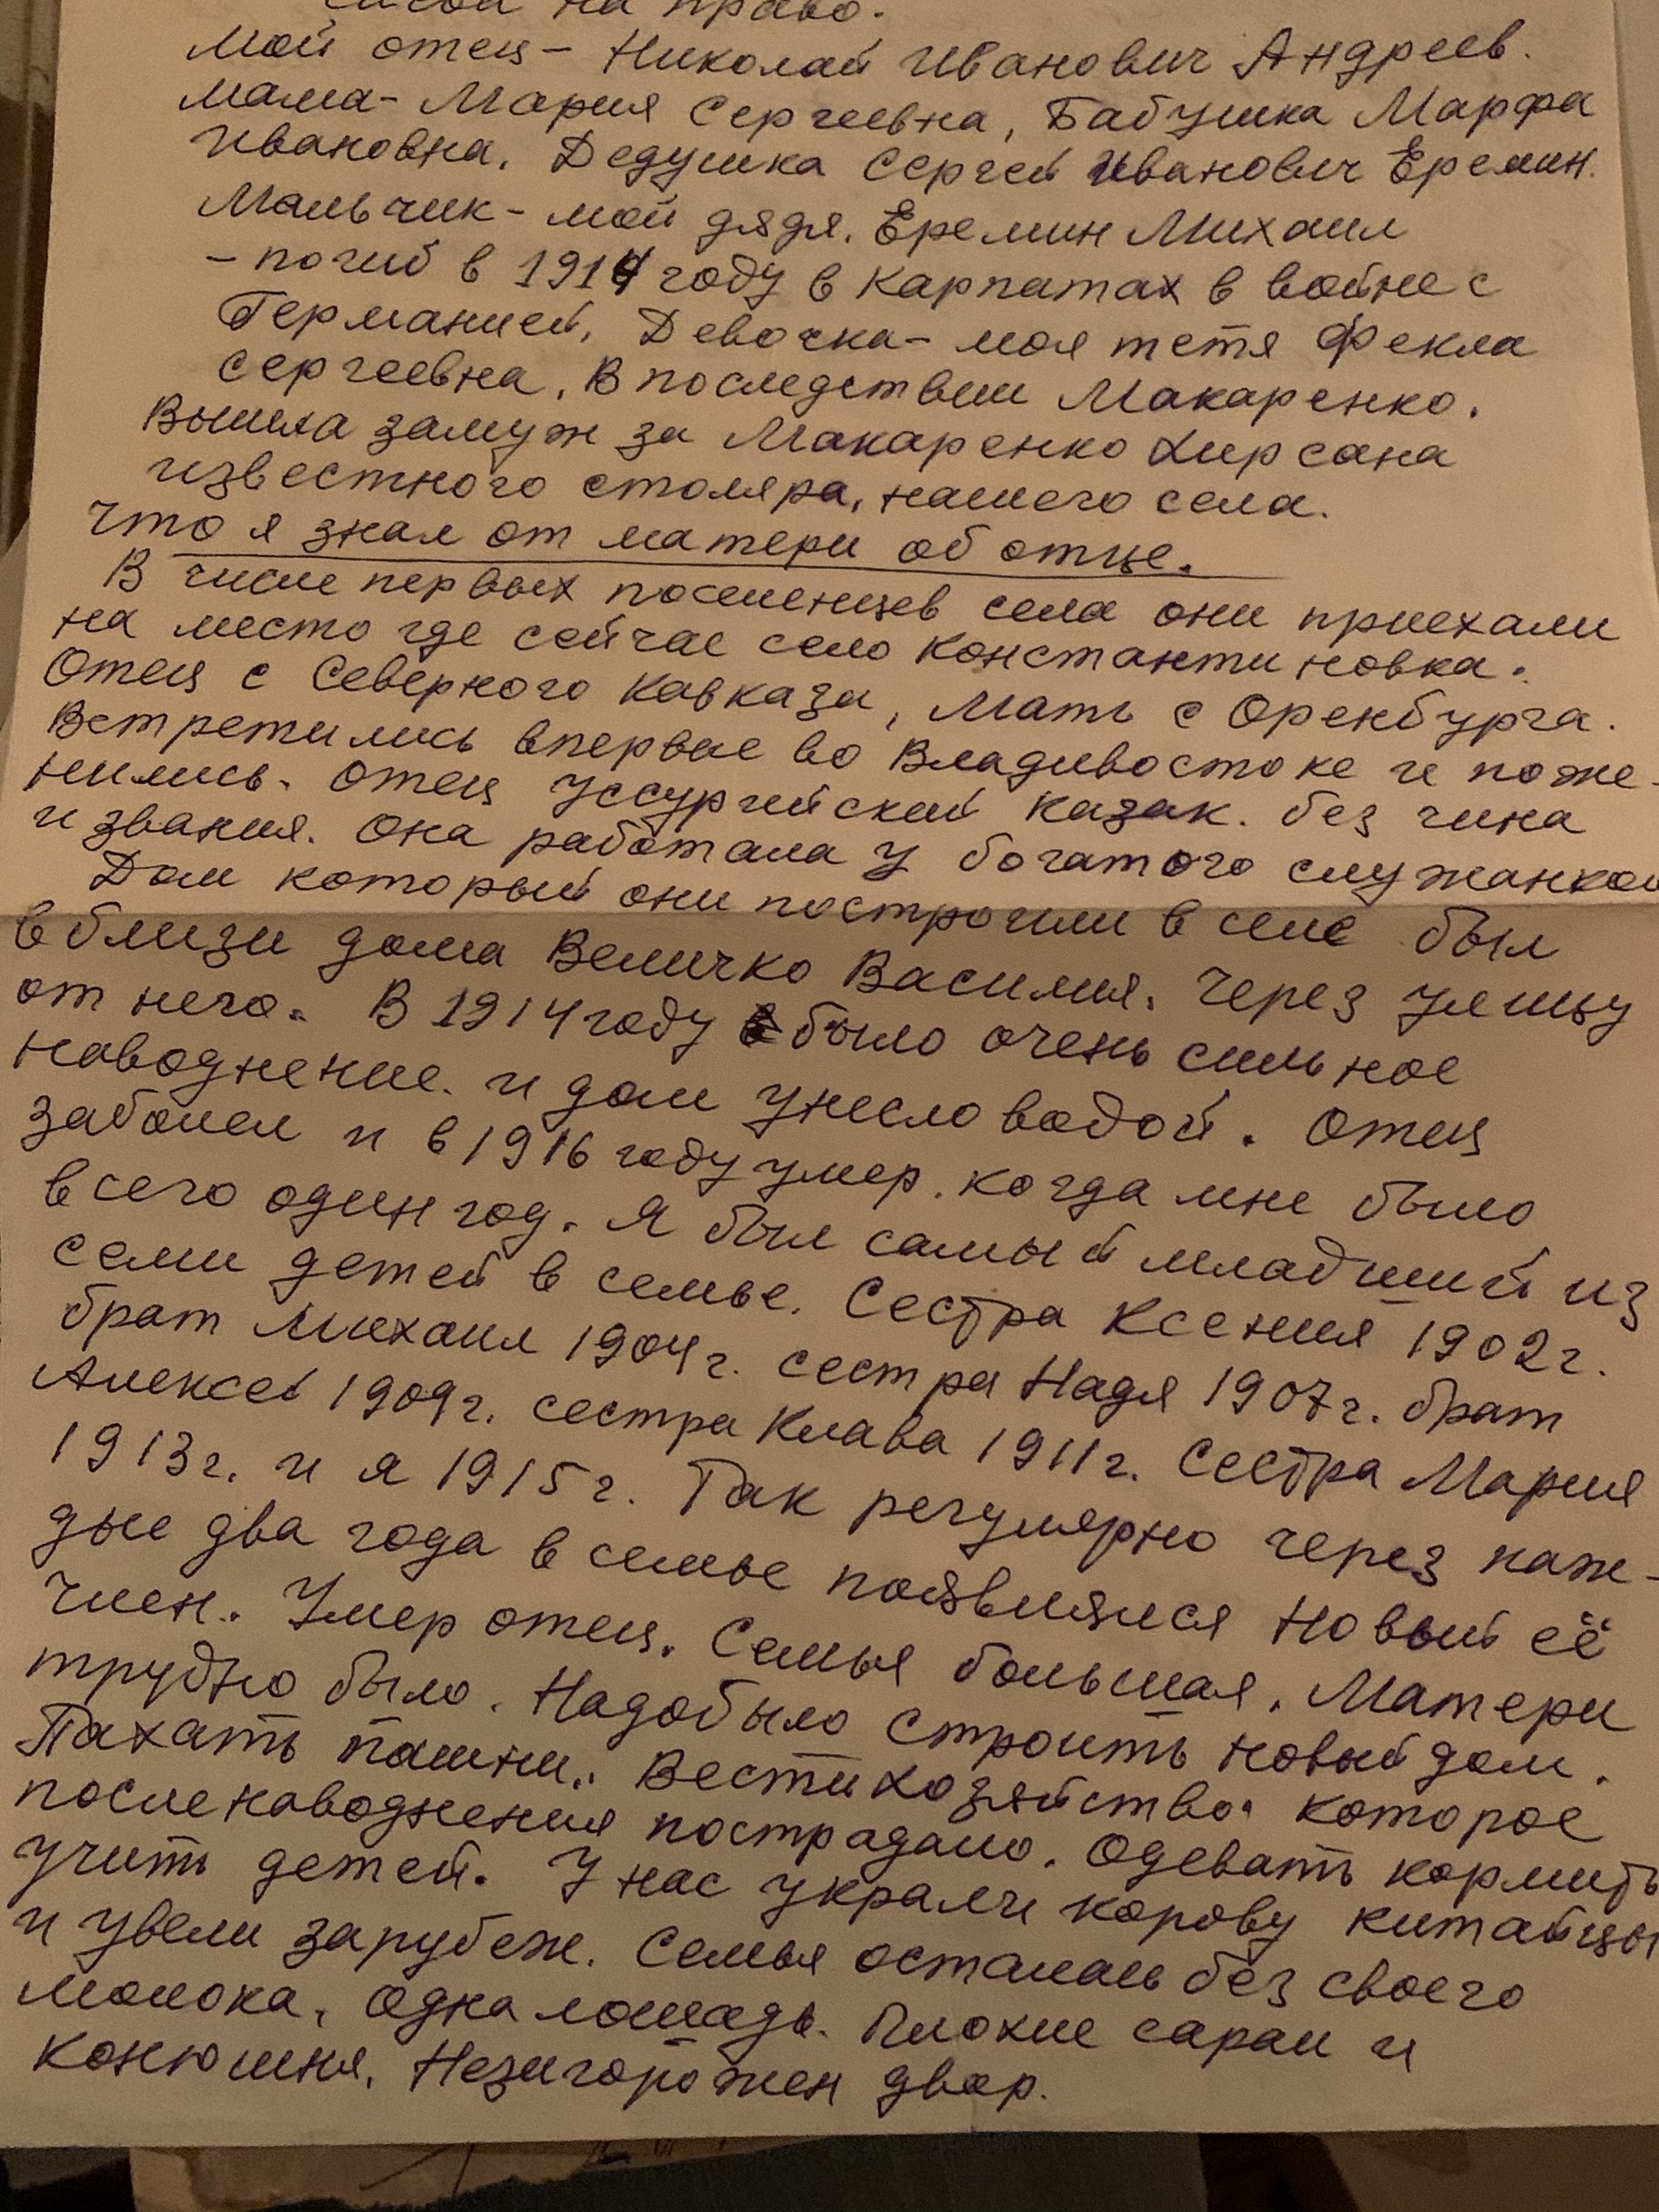 на право.
Мой отец - Николай Иванович Андреев.
Мама - Мария Сергеевна, Бабушка Марфа
Ивановна. Дедушка Сергей Иванович Еремин.
Мальчик - мой дядя. Еремин Михаил
- погиб в 1914 году в Карпатах в войне с
Германией, Девочка - моя тетя Фекла
Сергеевна. В последствии Макаренко.
Вышла замуж за Макаренко Хирсана
известного столяра, нашего села.
Что я знал от матери об отце.
В числе первых поселенцев села они приехали
на место где сейчас село Константиновка.
Отец с Северного Кавказа, Мать с Оренбурга.
Встретились впервые во Владивостоке и поже-
нились. Отец Уссурийский казак. без чина
и звания. Она работала у богатого служанкой
Дом который они построили в селе был
вблизи дома Величко Василия. Через улицу
от него. В 1914 году было очень сильное
наводнение. и дом унесло водой. Отец
заболел и в 1916 году умер. когда мне было
всего один год. Я был самый младший из
семи детей в семье. Сестра Ксения 1902 г.
брат Михаил 1904 г. сестра Надя 1907 г. брат
Алексей 1909 г. сестра Клава 1911 г. Сестра Мария
1913 г. и я 1915 г. Так регулярно через каж-
дые два года в семье появлялся Новый её
член. Умер отец. Семья большая. Матери
трудно было. Надо было строить новый дом.
Пахать пашни. Вести хозяйство. которое
после наводнения пострадало. Одевать кормить
учить детей. У нас украли корову китайцы
и увели зарубеж. Семья осталась без своего
молока. Одна лошадь. Плохие сараи и
конюшня. Незагорожен двор.